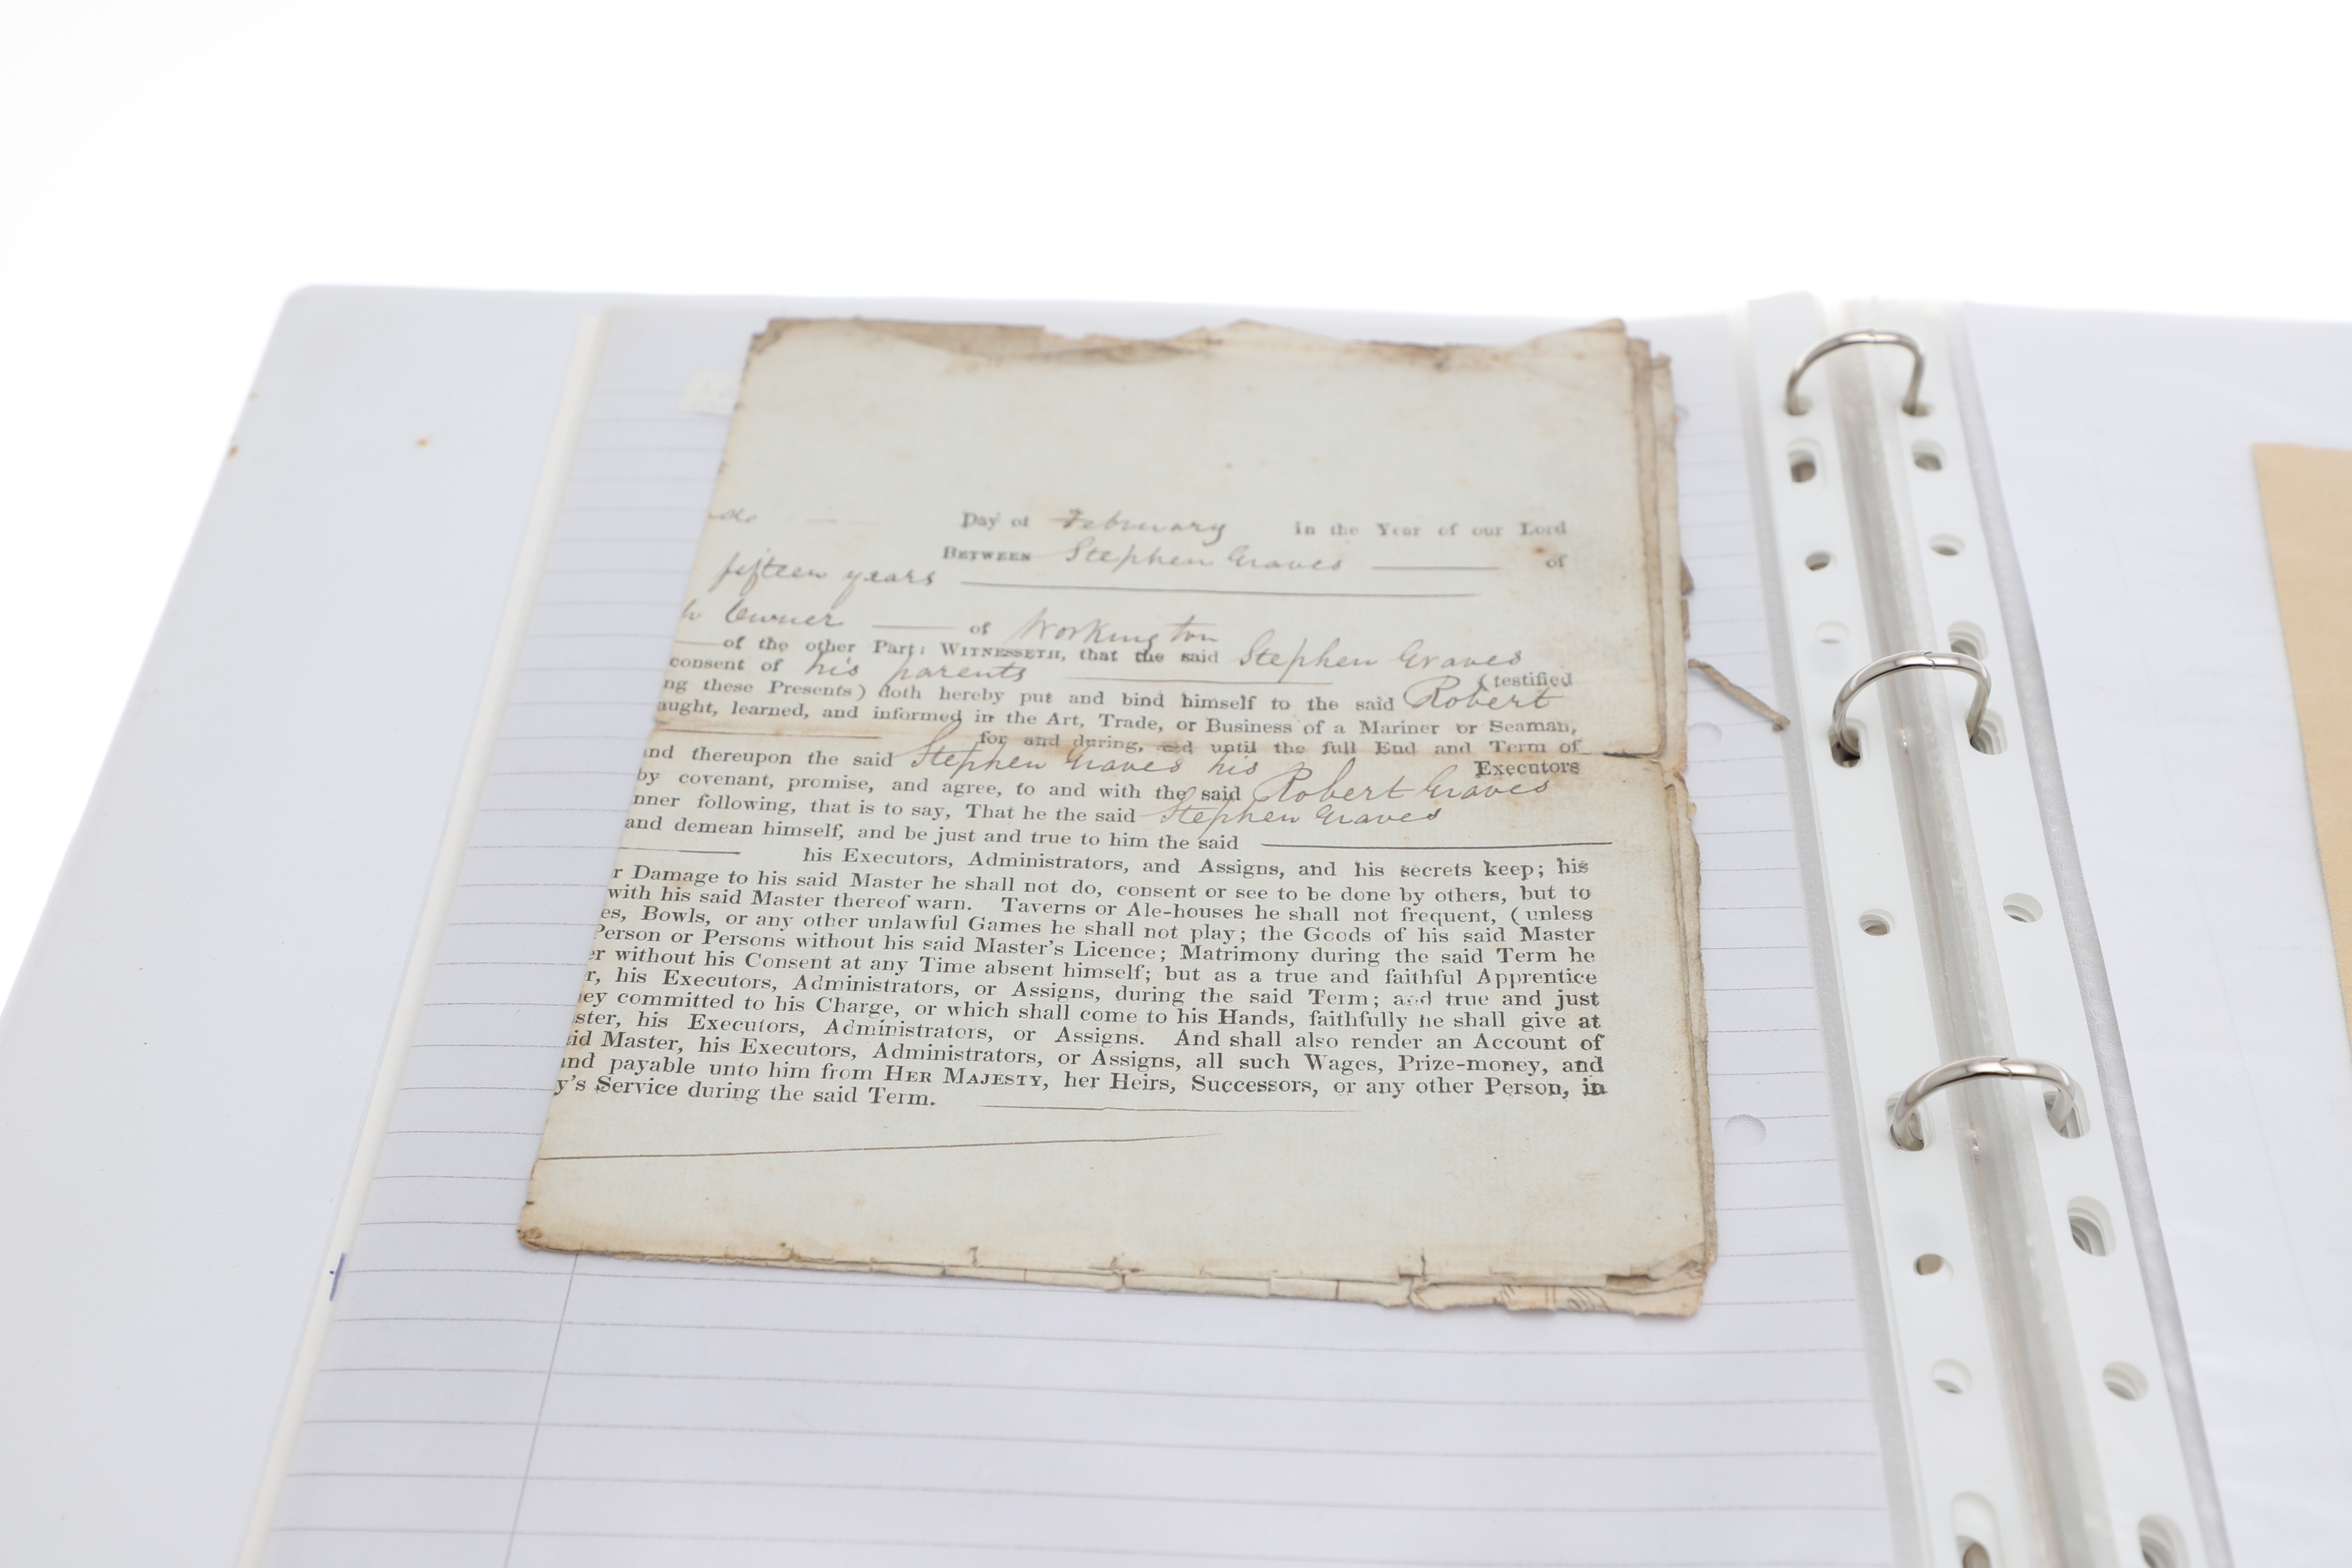 Day of February in the Year of our Lord
BETWEEN Stephen Graves of
fifteen years
h Owner of Workington
of the other Part: WITNESSETH, that the said Stephen Graves
consent of his parents (testified
ng these Presents) doth hereby put and bind himself to the said Robert
aught, learned, and informed in the Art, Trade, or Business of a Mariner or Seaman,
for and during, and until the full End and Term of
and thereupon the said Stephen Graves his Executors
by covenant, promise, and agree, to and with the said Robert Graves
nner following, that is to say, That he the said Stephen Graves
and demean himself, and be just and true to him the said
his Executors, Administrators, and Assigns, and his secrets keep; his
r Damage to his said Master he shall not do, consent or see to be done by others, but to
with his said Master thereof warn. Taverns or Ale-houses he shall not frequent, (unless
es, Bowls, or any other unlawful Games he shall not play; the Goods of his said Master
Person or Persons without his said Master's Licence; Matrimony during the said Term he
er without his Consent at any Time absent himself; but as a true and faithful Apprentice
r, his Executors, Administrators, or Assigns, during the said Term; and true and just
ney committed to his Charge, or which shall come to his Hands, faithfully he shall give at
ster, his Executors, Administrators, or Assigns. And shall also render an Account of
aid Master, his Executors, Administrators, or Assigns, all such Wages, Prize-money, and
and payable unto him from HER MAJESTY, her Heirs, Successors, or any other Person, in
y's Service during the said Term.